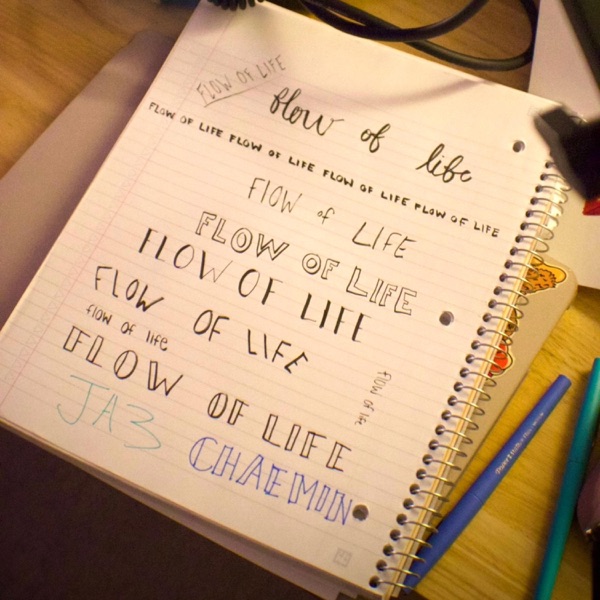 FLOW OF LIFE
flow of life
FLOW OF LIFE FLOW OF LIFE FLOW OF LIFE FLOW OF LIFE
FLOW of LIFE
FLOW OF LIFE
FLOW OF LIFE
FLOW OF LIFE
flow of life
flow of life
FLOW OF LIFE
JA3
CHAEMIN